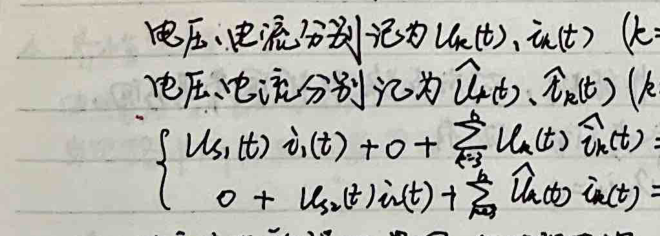 电压、电流分别记为 Uₖ(t)、iₖ(t) (k=
电压、电流分别记为 Ûₖ(t)、îₖ(t) (k
{ Us₁(t) i₁(t) + 0 + ∑ₖ₌₃ᵇ Uₖ(t) îₖ(t) =
0 + Us₂(t) i₂(t) + ∑ₖ₌₃ᵇ Ûₖ(t) iₖ(t) =